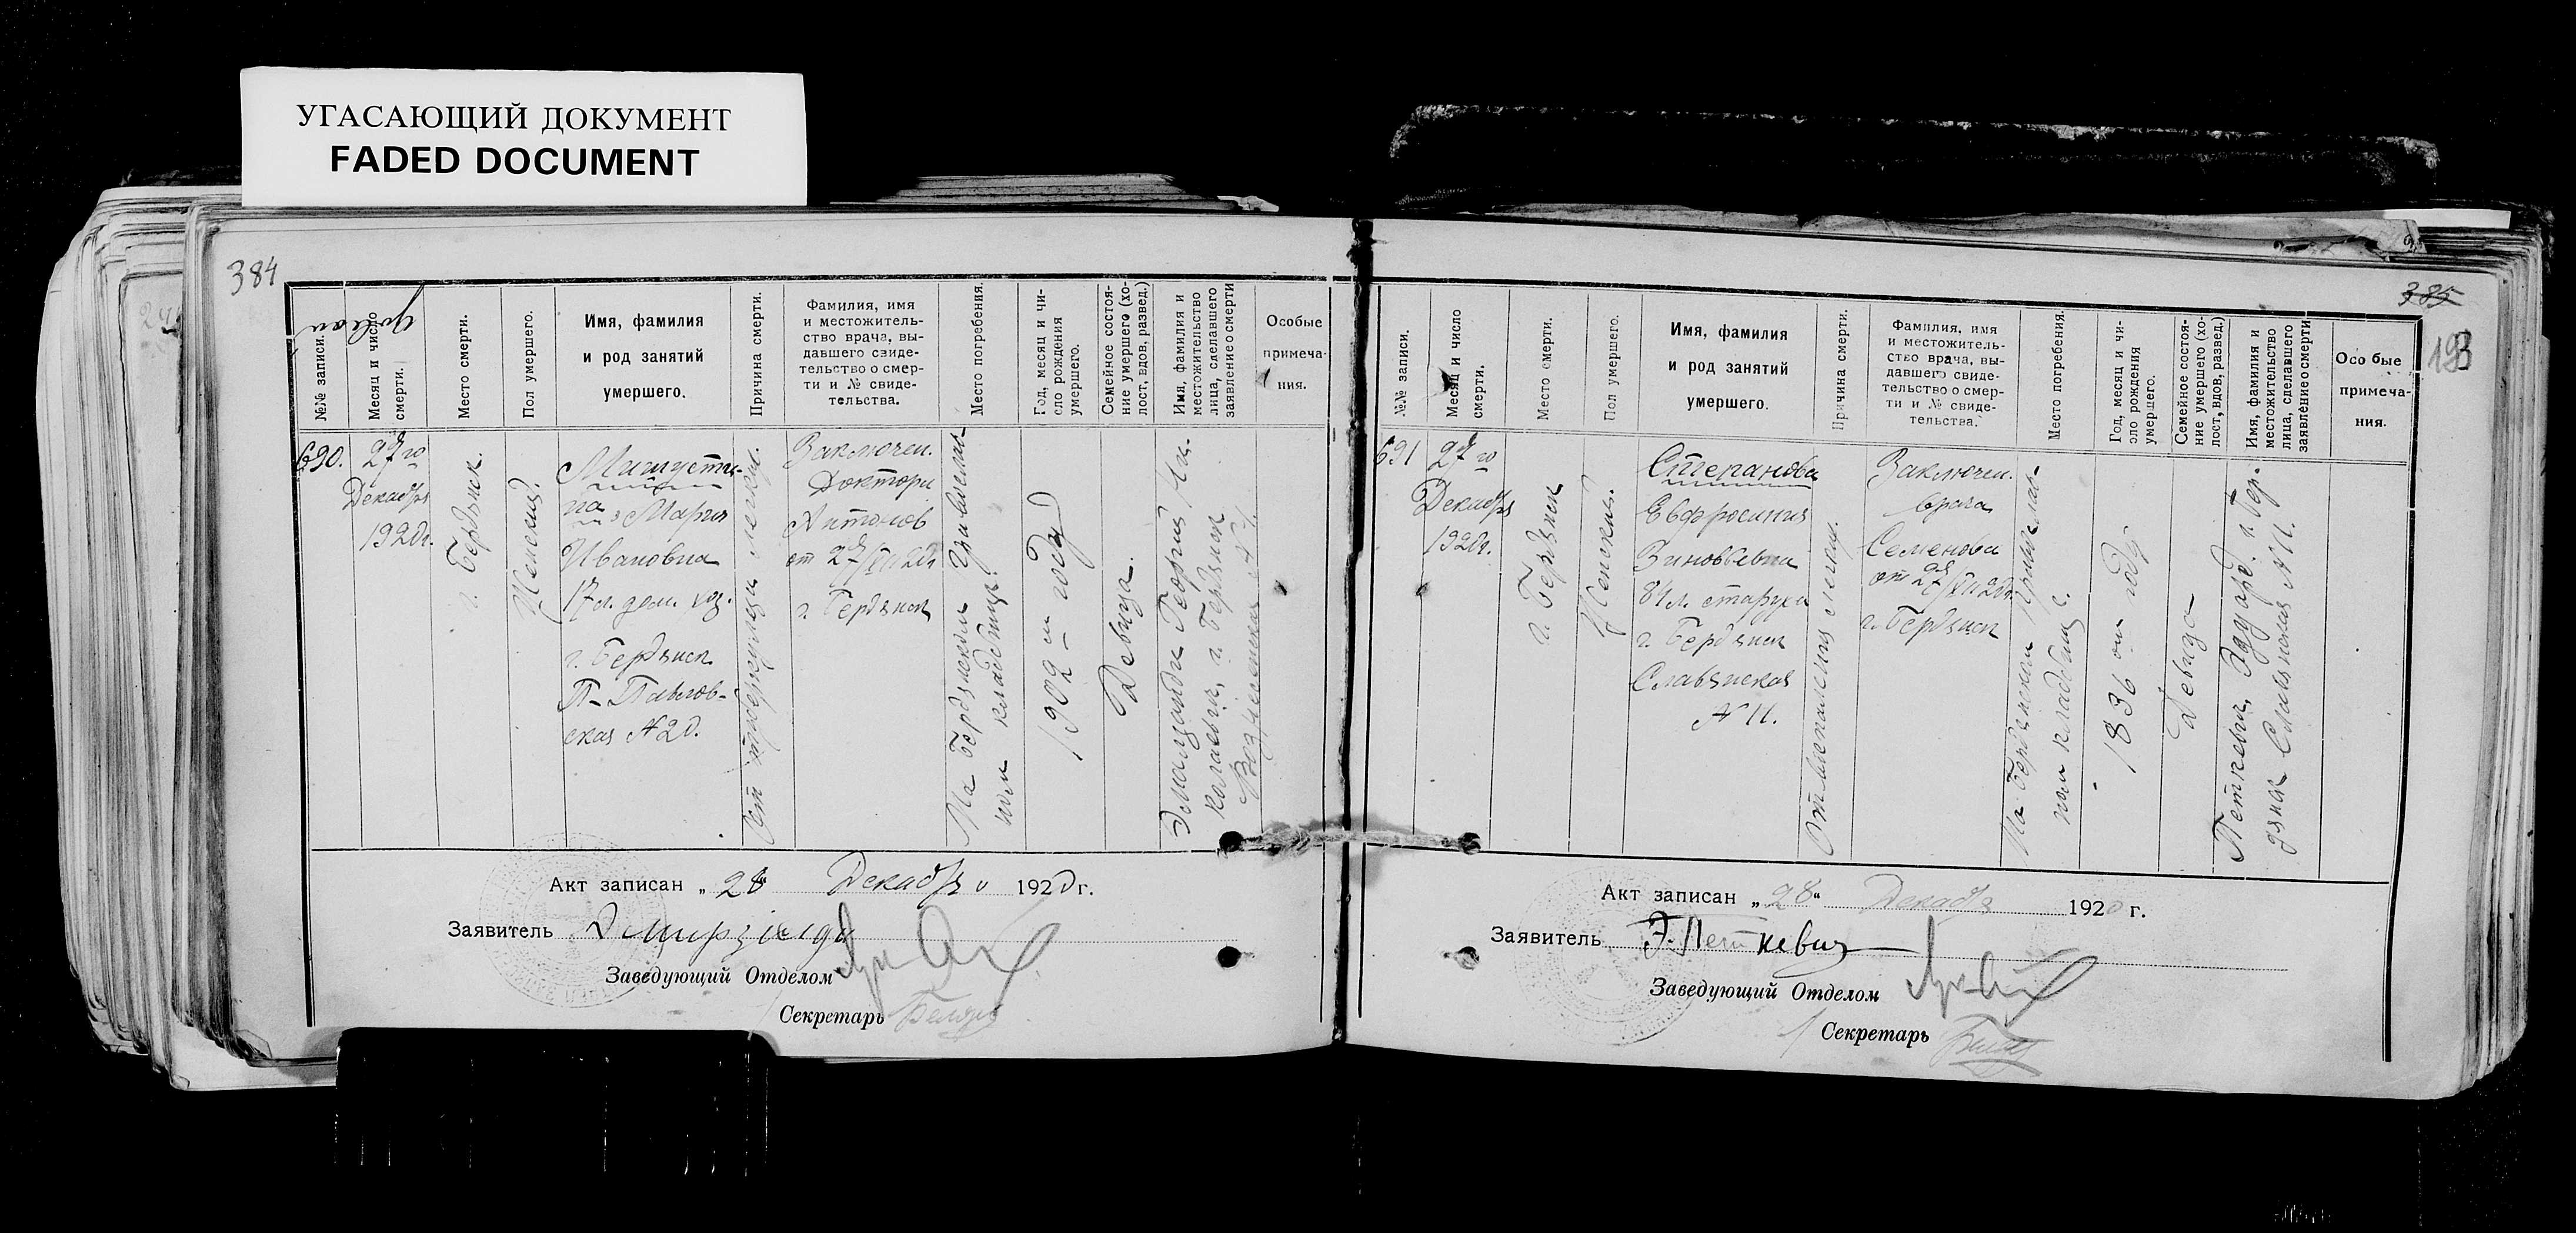 УГАСАЮЩИЙ ДОКУМЕНТ
FADED DOCUMENT
384
№№ записи.
Месяц и число
смерти.
Место смерти.
Пол умершего.
Имя, фамилия
и род занятий
умершего.
Причина смерти.
Фамилия, имя
и местожитель-
ство врача, вы-
давшего свиде-
тельство о смер-
ти и № свиде-
тельства.
Место погребения.
Год, месяц и чи-
сло рождения
умершего.
Семейное состоя-
ние умершего (хо-
лост, вдов, развед.)
Имя, фамилия и
местожительство
лица, сделавшего
заявление о смерти
Особые
примеча-
ния.
690.
27го
Декабря
1920г.
г. Бердянск.
Женский
Мишусти-
на Мария
Ивановна
17 л. дом. хоз.
г. Бердянск
П-Павлов-
ская №20.
От туберкулеза легких.
Заключен.
Доктора
Антонов
от 27/XII 20г
г. Бердянск
На Бердянском Православ-
ном кладбище.
1902 году
Девица.
Георгий Ни-
колаевич, г. Бердянск
Вознесенская
Акт записан „28“ Декабря 1920г.
Заявитель
Заведующий Отделом
Секретарь
385
193
№№ записи.
Месяц и число
смерти.
Место смерти.
Пол умершего.
Имя, фамилия
и род занятий
умершего.
Причина смерти.
Фамилия, имя
и местожитель-
ство врача, вы-
давшего свиде-
тельство о смер-
ти и № свиде-
тельства.
Место погребения.
Год, месяц и чи-
сло рождения
умершего.
Семейное состоя-
ние умершего (хо-
лост, вдов, развед.)
Имя, фамилия и
местожительство
лица, сделавшего
заявление о смерти
Особые
примеча-
ния.
691
27го
Декабря
1920г.
г. Бердянск
Женский.
Степанова
Евфросиния
Зиновьевна
84 л. старуха
г. Бердянск
Славянская
№ 11.
От воспаления легких.
Заключен.
врача
Семенова
от 27/XII 20г.
г. Бердянск
На Бердянском Православ-
ном кладбище.
1836 году
Девица
Петкевич, Эдуард. г. Бер-
дянск Славянская № 11.
Акт записан „28“ Декабря 1920 г.
Заявитель Э. Петкевич
Заведующий Отделом
Секретарь